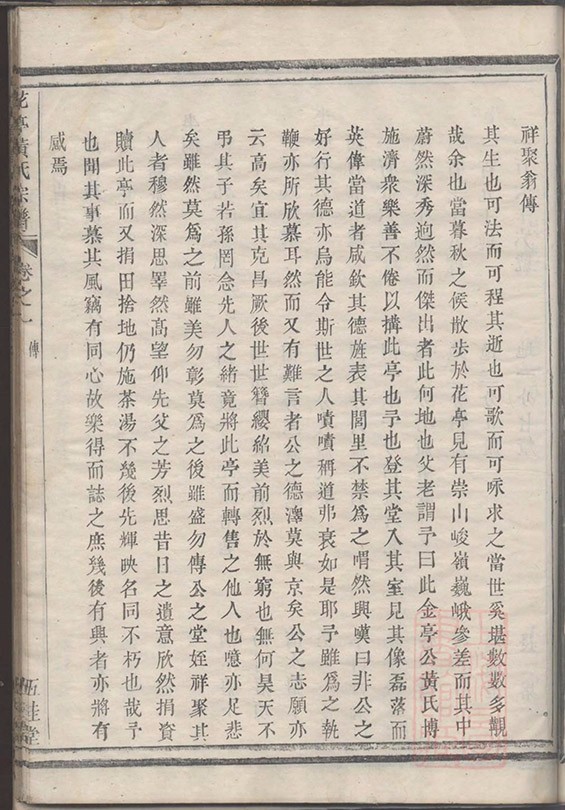 祥聚翁傳
其生也可法而可程其逝也可歌而可咏求之當世奚堪數數多覯
哉余也當暮秋之候散步於花亭見有崇山峻嶺巍峨參差而其中
蔚然深秀逈然而傑出者此何地也父老謂予曰此金亭公黃氏博
施濟衆樂善不倦以搆此亭也予也登其堂入其室見其像磊落而
英偉當道者咸欽其德旌表其閭里不禁為之喟然興嘆曰非公之
好行其德亦烏能令斯世之人嘖嘖稱道弗衰如是耶予雖為之執
鞭亦所欣慕耳然而又有難言者公之德澤莫與京矣公之志願亦
云高矣宜其克昌厥後世世簪纓紹美前烈於無窮也無何昊天不
弔其子若孫罔念先人之緒竟將此亭而轉售之他人也噫亦足悲
矣雖然莫為之前雖美勿彰莫為之後雖盛勿傳公之堂姪祥聚其
人者穆然深思睪然高望仰先父之芳烈思昔日之遺意欣然捐資
贖此亭而又捐田捨地仍施茶湯不幾後先輝映名同不朽也哉予
也聞其事慕其風竊有同心故樂得而誌之庶幾後有興者亦將有
感焉
花亭黃氏宗譜
卷之一
傳
五桂堂